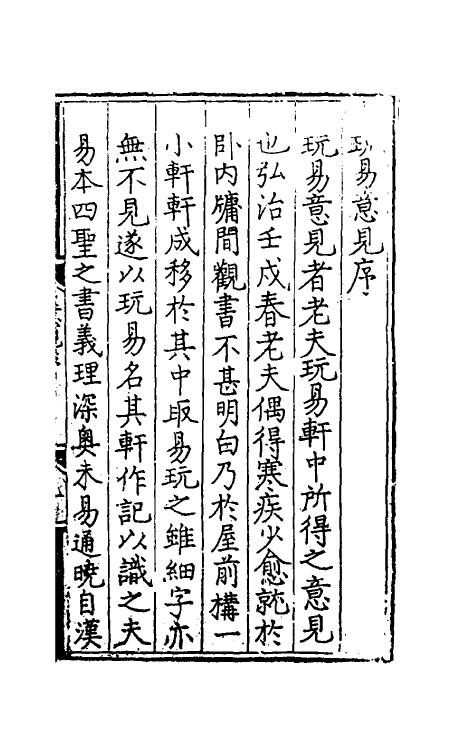 玩易意見序
玩易意見者老夫玩易軒中所得之意見
也弘治壬戌春老夫偶得寒疾少愈就於
卧内牗間觀書不甚明白乃於屋前構一
小軒軒成移於其中取易玩之雖細字亦
無不見遂以玩易名其軒作記以識之夫
易本四聖之書義理深奥未易通曉自漢